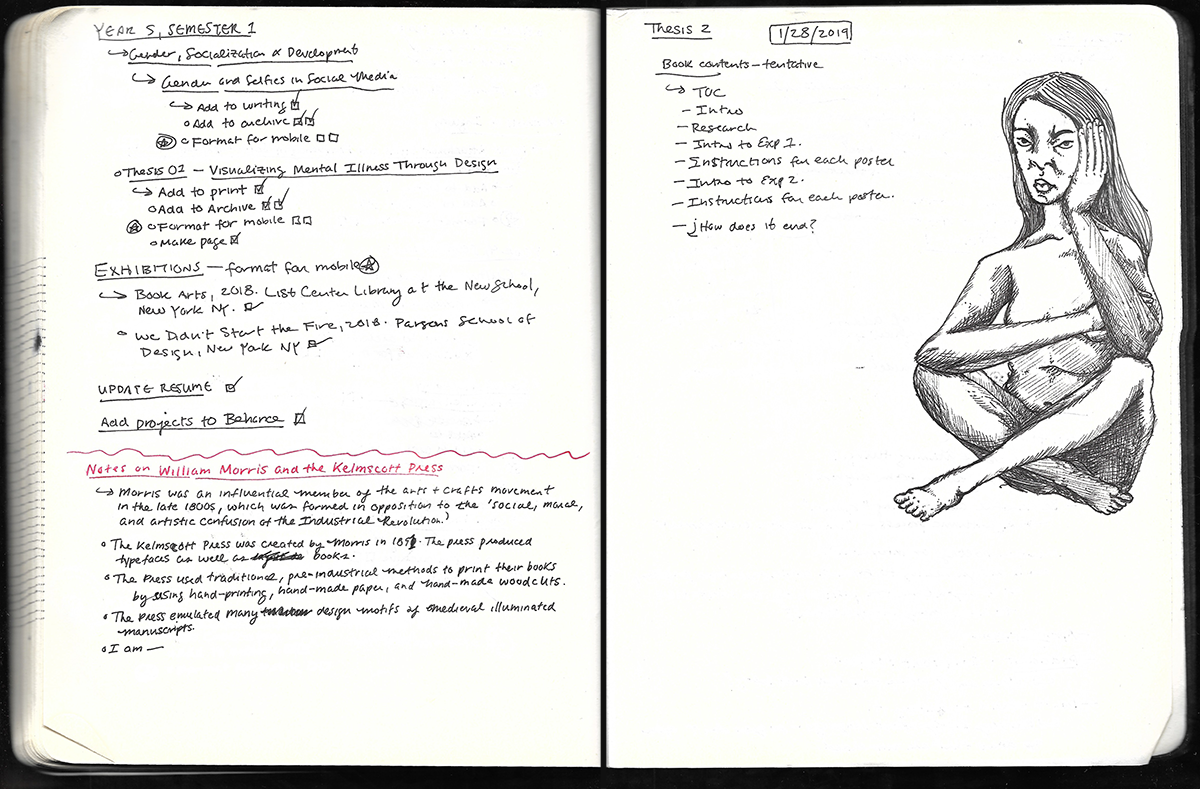 YEAR 5, SEMESTER 1
Gender, Socialization & Development
Gender and Selfies in Social Media
Add to writing
Add to archive
Format for mobile
Thesis 01 — Visualizing Mental Illness Through Design
Add to print
Add to Archive
Format for mobile
Make page
EXHIBITIONS — format for mobile
Book Arts, 2018. List Center Library at the New School,
New York NY.
We Didn't Start the Fire, 2018. Parsons School of
Design, New York NY
UPDATE RESUME
Add projects to Behance
Notes on William Morris and the Kelmscott Press
Morris was an influential member of the arts + crafts movement
in the late 1800s, which was formed in opposition to the 'social, moral,
and artistic confusion of the Industrial Revolution.'
The Kelmscott Press was created by Morris in 1891. The press produced
typefaces as well as books.
The Press used traditional, pre-industrial methods to print their books
by using hand-printing, hand-made paper, and hand-made woodcuts.
The press emulated many design motifs of medieval illuminated
manuscripts.
I am —
Thesis 2 1/28/2019
Book contents — tentative
TOC
— Intro
— Research
— Intro to Exp 1.
— Instructions for each poster
— Intro to Exp 2.
— Instructions for each poster.
— ¿How does it end?